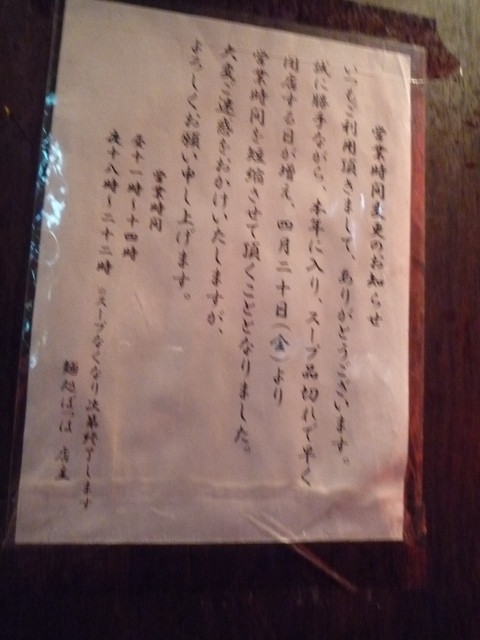 営業時間変更のお知らせ
いつもご利用頂きまして、ありがとうございます。
誠に勝手ながら、本年に入り、スープ品切れで早く
閉店する日が増え、四月二十日(金)より
営業時間を短縮させて頂くこととなりました。
大変ご迷惑をおかけいたしますが、
よろしくお願い申し上げます。
営業時間
昼十一時〜十四時
夜十八時〜二十二時
※スープなくなり次第終了します
麺処ばっは 店主